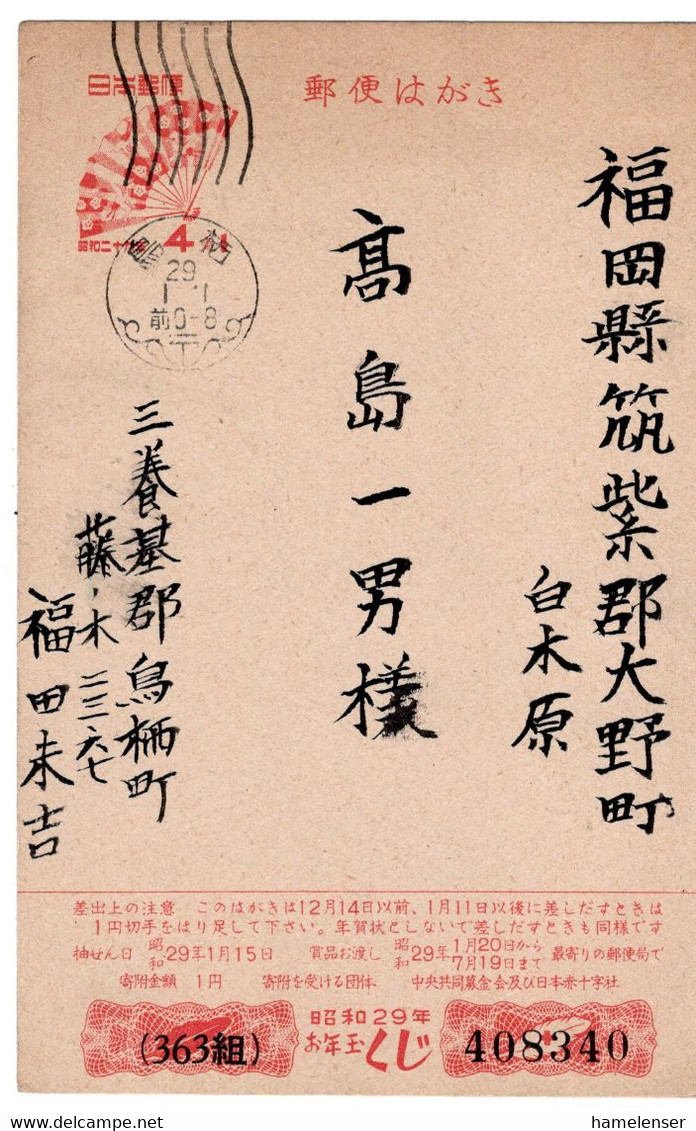 郵便はがき
日本郵便
昭和二十九年
4+1
鳥栖
29
1.1
前0-8
福岡縣筑紫郡大野町
白木原
髙島一男様
三養基郡鳥栖町
藤ノ木二二六七
福田未吉
差出上の注意 このはがきは12月14日以前、1月11日以後に差しだすときは
1円切手をはり足して下さい。年賀状としないで差しだすときも同様です
抽せん日 昭和29年1月15日 賞品お渡し 昭和29年1月20日から7月19日まで 最寄りの郵便局で
寄附金額 1円 寄附を受ける団体 中央共同募金会及び日本赤十字社
昭和29年
お年玉くじ
(363組)
408340
hamelenser